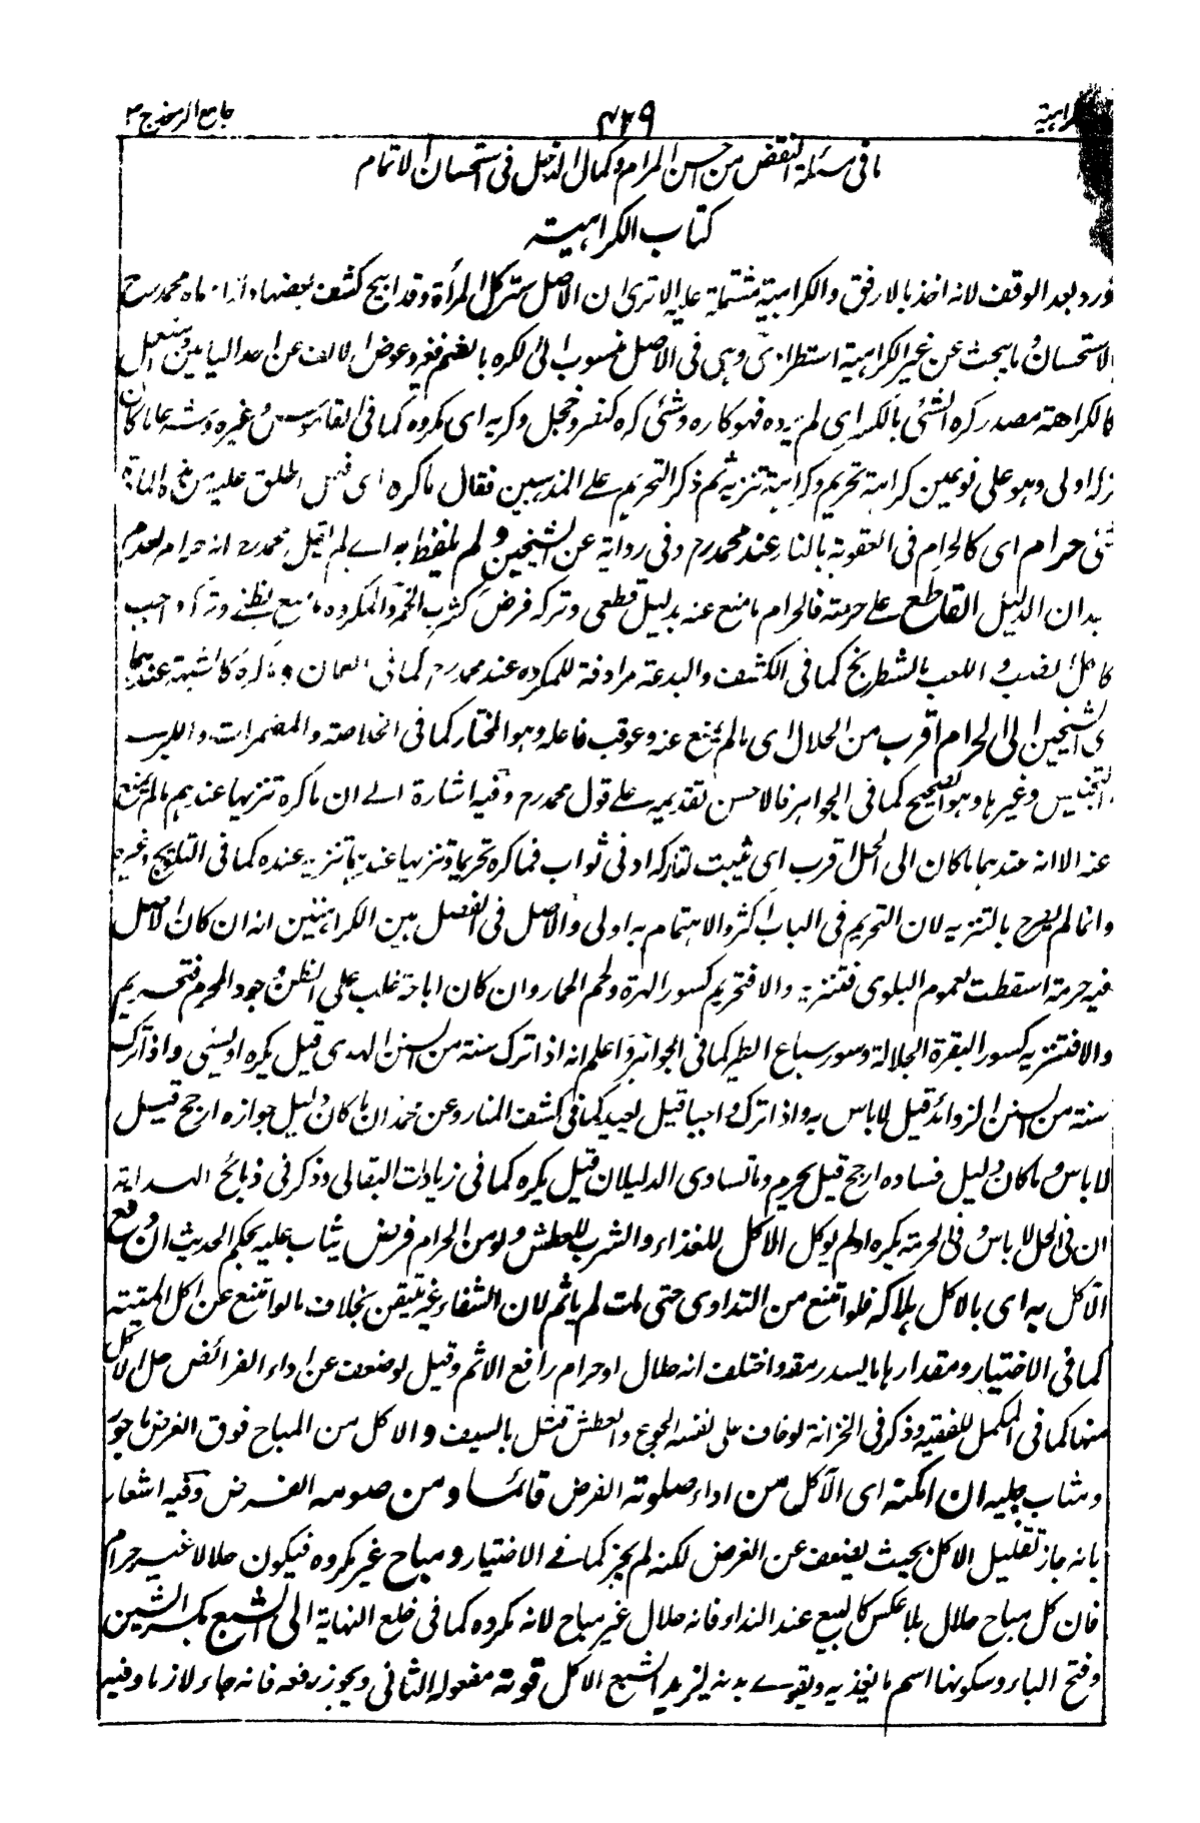 جامع الرموز ج ٣
٤٢٩
كراهية
ما فى مسئلة النقض من حسن المرام وكمال الدخل فى استحسان الاتمام
كتاب الكراهية
بعد الوقف لانه اخذ بالارفق والكراهية مشتملة عليه الا ترى ان الاصل ستر كل المرأة وقد ابيح كشف بعضها
الاستحسان وما يبحث عن غير الكراهية استطرادى وهى فى الاصل منسوب الى الكره بالضم فغير وعوض الالف عن احد اليائين
كالكراهة مصدر كره الشئى بالكسر اى لم يرده فهو كاره وشئى كره كنصر وخجل وكريه اى مكروه كما فى القاموس وغيره وشرعا ما كان
تركه اولى وهو على نوعين كراهة تحريم وكراهة تنزيه ثم ذكر التحريم على المذهبين فقال ما كره اى فيما اطلق عليه
حرام اى كالحرام فى العقوبة بالنار عند محمد رح وفى رواية عن الشيخين ولم يلفظ به اے لم يقل محمد رح انه حرام لعدم
الدليل القاطع على حرمته فالحرام ما منع عنه بدليل قطعى وتركه فرض كشرب الخمر والمكروه ما منع بظنے وتركه واجب
كاكل الضب و اللعب بالشطرنج كما فى الكشف والبدعة مرادفة للمكروه عند محمد رح كما فى
الشيخين الى الحرام اقرب من الحلال اى ما لم يمنع عنه وعوقب فاعله وهو المختار كما فى الخلاصة والمضمرات
التجنيس وغيرها وهو الصحيح كما فى الجواهر فالاحسن تقديمه على قول محمد رح وفيه اشارة الے ان ما كره تنزيها عندهم ما لم يمنع
عنه الا انه عندهما ما كان الى الحل اقرب اى ثبت لتاركه ادنى ثواب فما كره تحريما وتنزيها عندهما تنزيه عنده كما فى التلويح وغيره
وانما لم يصرح بالتنزيه لان التحريم فى الباب اكثر والاهتمام به اولى والاصل فى الفصل بين الكراهتين انه ان كان الاصل
فيه حرمته اسقطت لعموم البلوى فتنزيه والا فتحريم كسور الهرة ولحم الحمار وان كان اباحة غلب على الظن وجود المحرم فتحريم
والا فتنزيه كسور البقرة الجلالة وسور سباع الطير كما فى الجواهر واعلم انه اذا ترك سنة من السنن الهدى قيل يكره او يسئى واذا ترك
سنة من السنن الزوائد قيل لا باس به واذا ترك واجبا قيل يعيد كما فى كشف المنار وعن محمد ان ما كان دليل جوازه ارجح قيل
لا باس وما كان دليل فساده ارجح قيل يحرم وما تساوى الدليلان قيل يكره كما فى زيادات البقالى وذكر فى ذبائح الهداية
ان فى الحل لا باس وفى الحرمة يكره او لم يوكل الاكل للغذاء والشرب للعطش ولو من الحرام فرض يثاب عليه بحكم الحديث ان دفع
الآكل به اى بالاكل هلاكه فلو امتنع من التداوى حتى مات لم ياثم لان الشفاء غير متيقن بخلاف ما لو امتنع عن اكل الميتة
كما فى الاختيار ومقدارها ما يسد رمقه واختلف انه حلال او حرام رافع الاثم وقيل لو ضعف عن اداء الفرائض حل الاكل
منها كما فى المكمل للفقيه وذكر فى الخزانة لو خاف على نفسه الجوع والعطش قتل بالسيف والاكل من المباح فوق الفرض ماجور
ومثاب عليه ان امكنه اى الآكل من اداء صلوته الفرض قائما ومن صومه الفرض وفيه اشعار
بانه جاز تقليل الاكل بحيث يضعف عن الفرض لكنه لم يجز كما فے الاختيار ومباح غير مكروه فيكون حلالا غير حرام
فان كل مباح حلال بلا عكس كالبيع عند النداء فانه حلال غير مباح لانه مكروه كما فى خلع النهاية الى الشبع بكسر الشين
وفتح الباء وسكونها اسم ما يغذيه ويقوے بدنه ليزيد الشبع الاكل قوته مفعوله الثانى ويجوز رفعه فانه جاء لازما وفيه